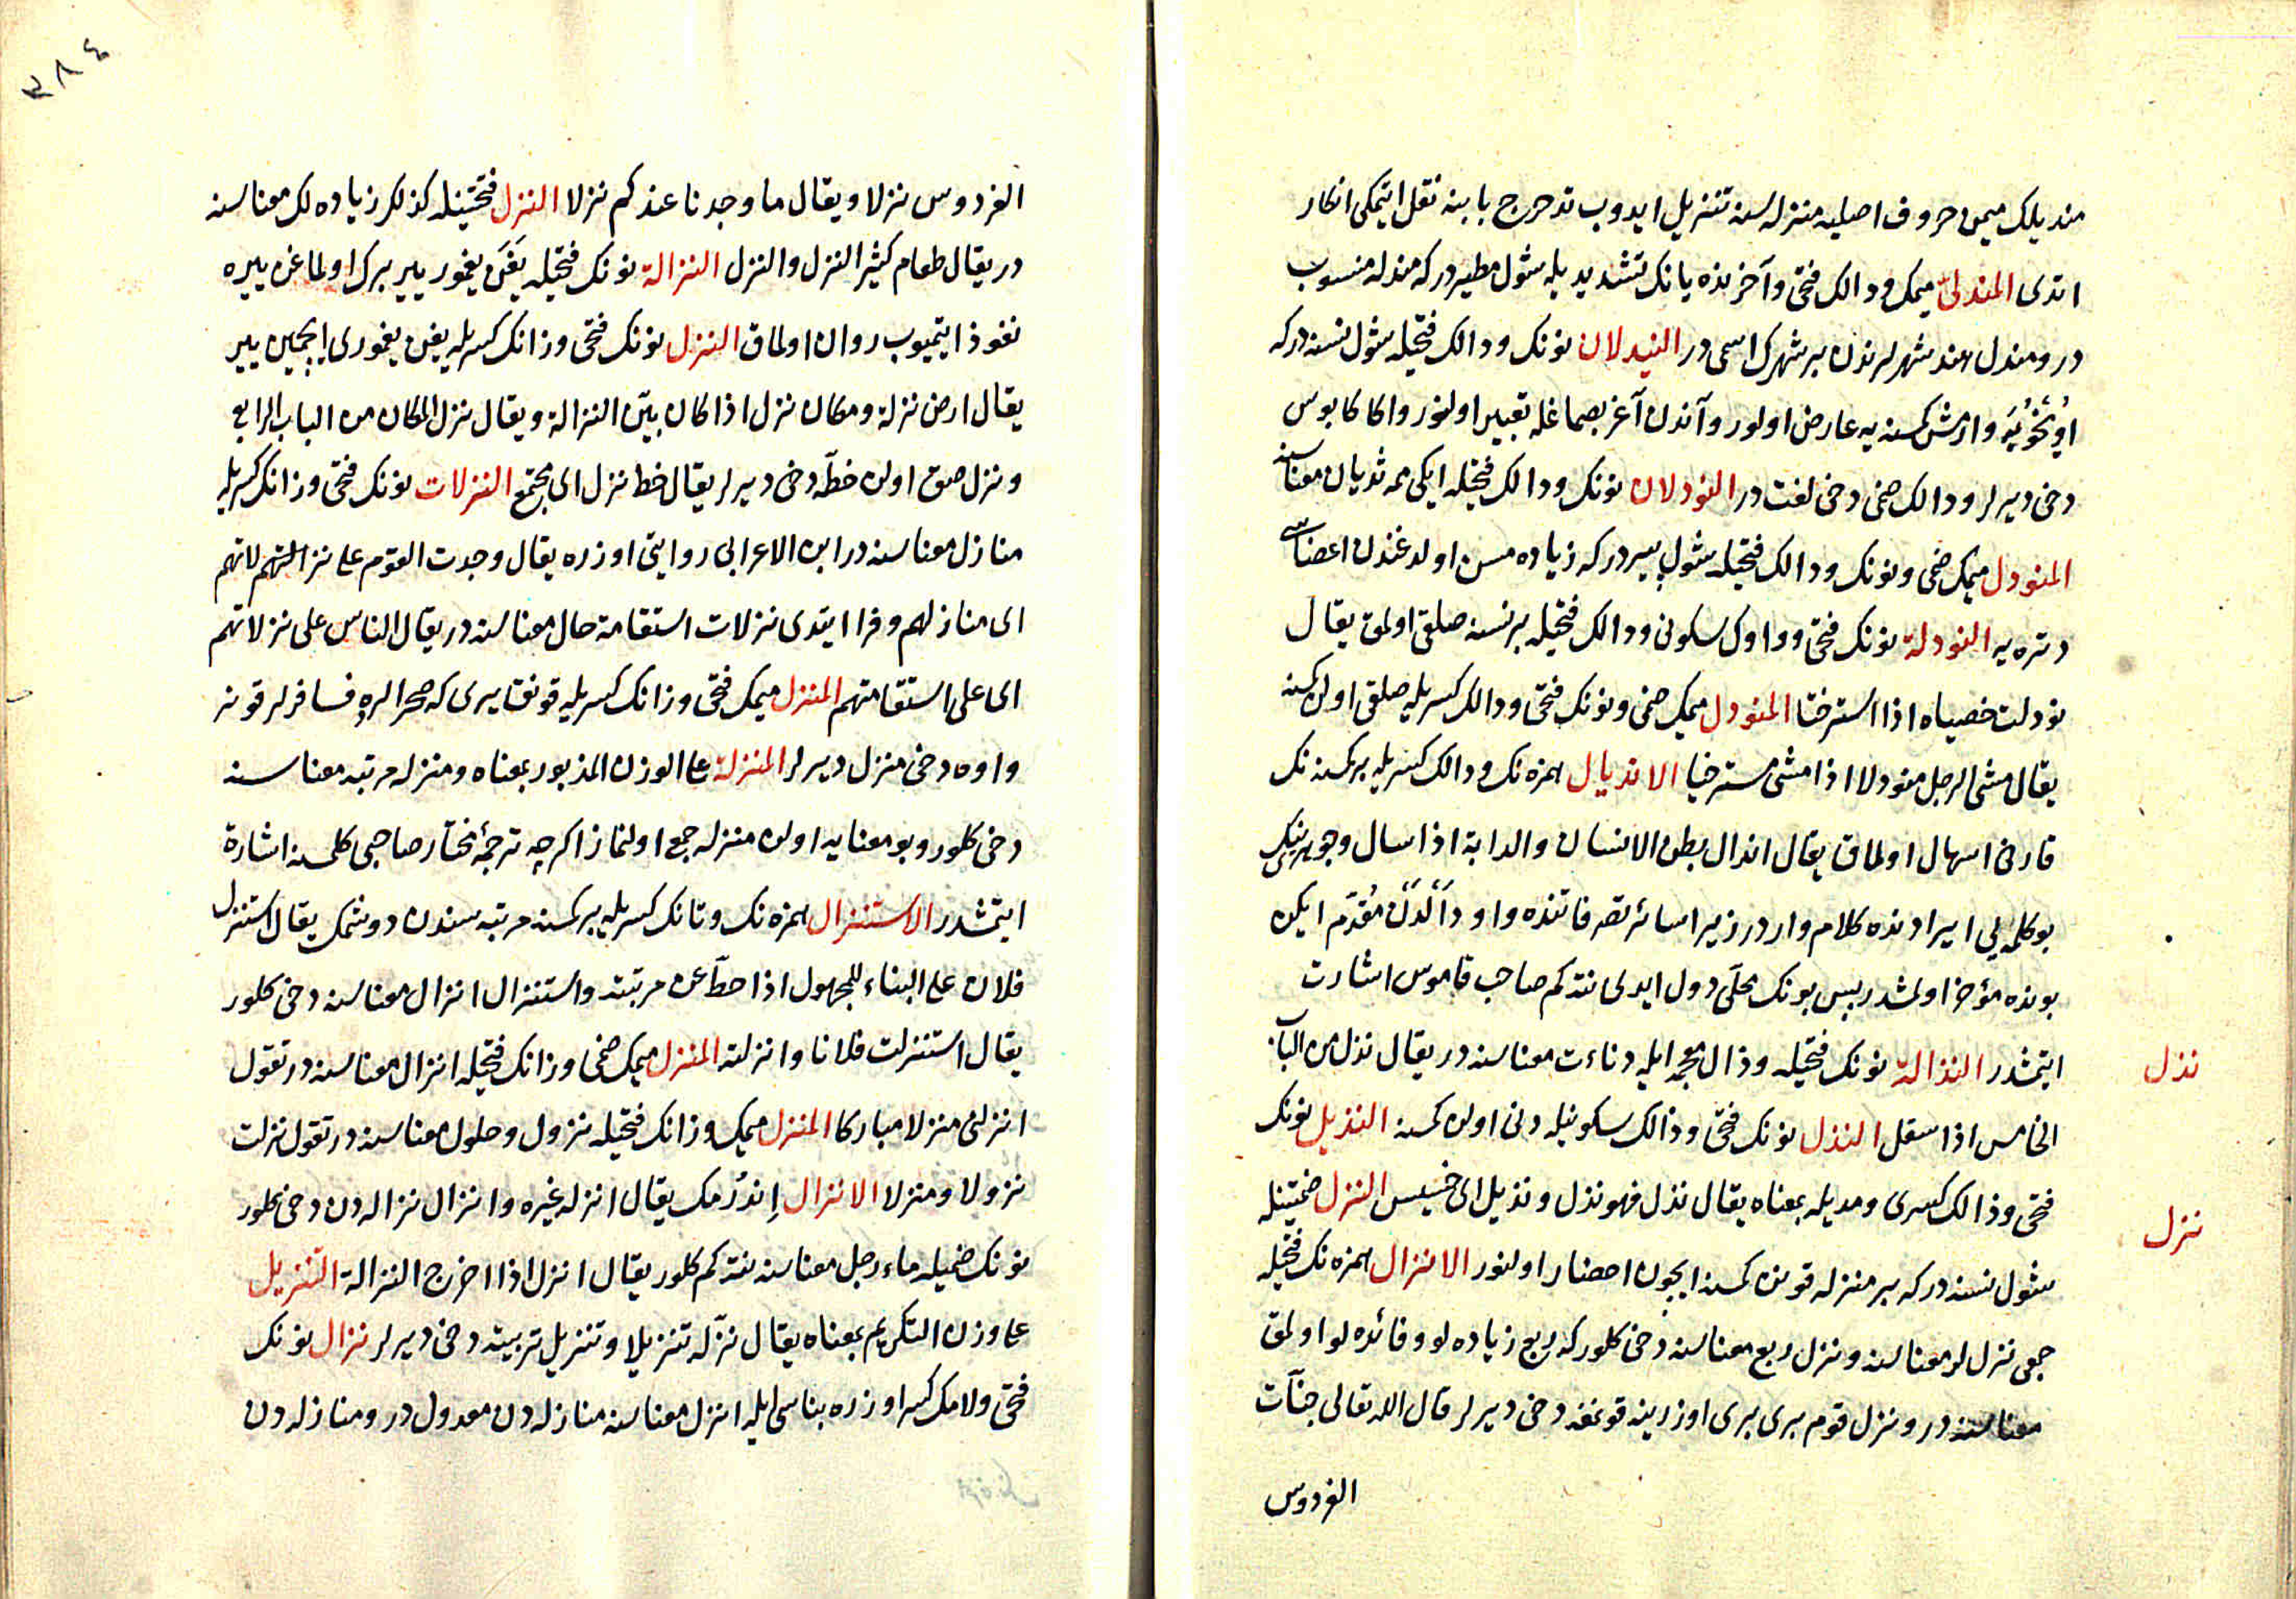 مندیلک میمن حروف اصلیه منزله سنه تنزیل ایدوب تدحرج بابنه نقل ایتمکی انکار
اتدی المندلیّ میمک و دالک فتحی و آخرنده یانک تشدیدیله شول مطیردر که مندله منسوب
در و مندل هند شهرلرندن بر شهرک اسمی در النیدلان نونک و دالک فتحیله شول نسنه درکه
اویخویه وارمش کمسنه یه عارض اولور و آندن آغر بصماغله تعبیر اولنور و اکا کابوس
دخی دیرلر و دالک ضمی دخی لغت در النودلان نونک و دالک فتحیله ایکی ممه ثدیان معناسنه
المنودل میمک ضمی و نونک و دالک فتحیله شول پیردر که زیاده مسن اولدغندن اعضاسی
دتره یه النودلة نونک فتحی و واوک سکونی و دالک فتحیله بر نسنه صلقی اولمق یقال
نودلت خصیاه اذا استرختا المنودل میمک ضمی و نونک فتحی و دالک کسریله صلقی اولن کمسنه
یقال مشی الرجل منودلا اذا مشی مسترخیا الاندیال همزه نک و دالک کسریله بر کمسنه نک
قارنی اسهال اولماق یقال اندال بطن الانسان والدابة اذا سال و جوهرینک
بو کلمه یی ایرادنده کلام واردر زیرا سائر تصرفاتنده واو دالدن مقدم ایکن
بونده مؤخر اولمشدر پس بونک محلی دول ایدی نتکم صاحب قاموس اشارت
ایتمشدر النذالة نونک فتحیله و ذال معجمه ایله دناءت معناسنه در یقال نذل من الباب
نذل
الخامس اذا سفل النذل نونک فتحی و ذالک سکونیله دنی اولن کمسنه النذیل نونک
فتحی و ذالک کسری و مدیله بمعناه یقال نذل فهو نذل و نذیل ای خسیس النزل ضمتینله
نزل
شول نسنه درکه بر منزله قونن کمسنه ایچون احضار اولنور الانزال همزه نک فتحیله
جمعی نزل لر معناسنه و نزل ریع معناسنه دخی کلور که ریع زیاده لو و فائده لو اولمق
معناسنه در و نزل قوم بری بری اوزرینه قونمغه دخی دیرلر قال الله تعالی جنّات
الفردوس
٣٨٤
الفردوس نزلا و یقال ما وجدنا عندکم نزلا النزل فتحتینله کذلک زیاده لک معناسنه
در یقال طعام کثیر النزل والنزل النزالة نونک فتحیله یغن یغمور ییر برک اولماغن ییره
نفوذ ایتمیوب روان اولماق النزل نونک فتحی و زانک کسریله یغن یغموری ایچمین ییر
یقال ارض نزلة و مکان نزل اذا کان بیّن النزالة و یقال نزل المکان من الباب الرابع
و نزل صق اولن خطّه دخی دیرلر یقال خط نزل ای مجتمع النزلات نونک فتحی و زانک کسریله
منازل معناسنه در ابن الاعرابی روایتی اوزره یقال وجدت القوم علی نزلاتهم
ای منازلهم و فرا ایتدی نزلات استقامة حال معناسنه در یقال الناس علی نزلاتهم
ای علی استقامتهم المنزل میمک فتحی و زانک کسریله قونق ییری که صحرالرده مسافرلر قونر
و اوه دخی منزل دیرلر المنزلة علی الوزن المذبور بمعناه و منزله مرتبه معناسنه
دخی کلور و بو معنایه اولن منزله جمع اولنماز اکرچه ترجمۀ مختار صاحبی کلمسنه اشارة
ایتمشدر الاستنزال همزه نک و تانک کسریله بر کمسنه مرتبه سندن دوشمک یقال استنزل
فلان علی البناء للمجهول اذا حطّ عن مرتبته و استنزال انزال معناسنه دخی کلور
یقال استنزلت فلانا و انزلته المنزل میمک ضمی و زانک فتحیله انزال معناسنه در تقول
انزلنی منزلا مبارکا المنزل میمک و زانک فتحیله نزول و حلول معناسنه در تقول نزلت
نزولا و منزلا الانزال اندرمک یقال انزله غیره و انزال نزاله دن دخی کلور
نونک ضمیله ماء رجل معناسنه نتکم کلور یقال انزل اذا اخرج النزالة التنزیل
علی وزن التکریم بمعناه یقال نزّله تنزیلا و تنزیل تربیته دخی دیرلر نزال نونک
فتحی و لامک کسر اوزره بناسی ایله انزل معناسنه منازله دن معدول در و منازله دن